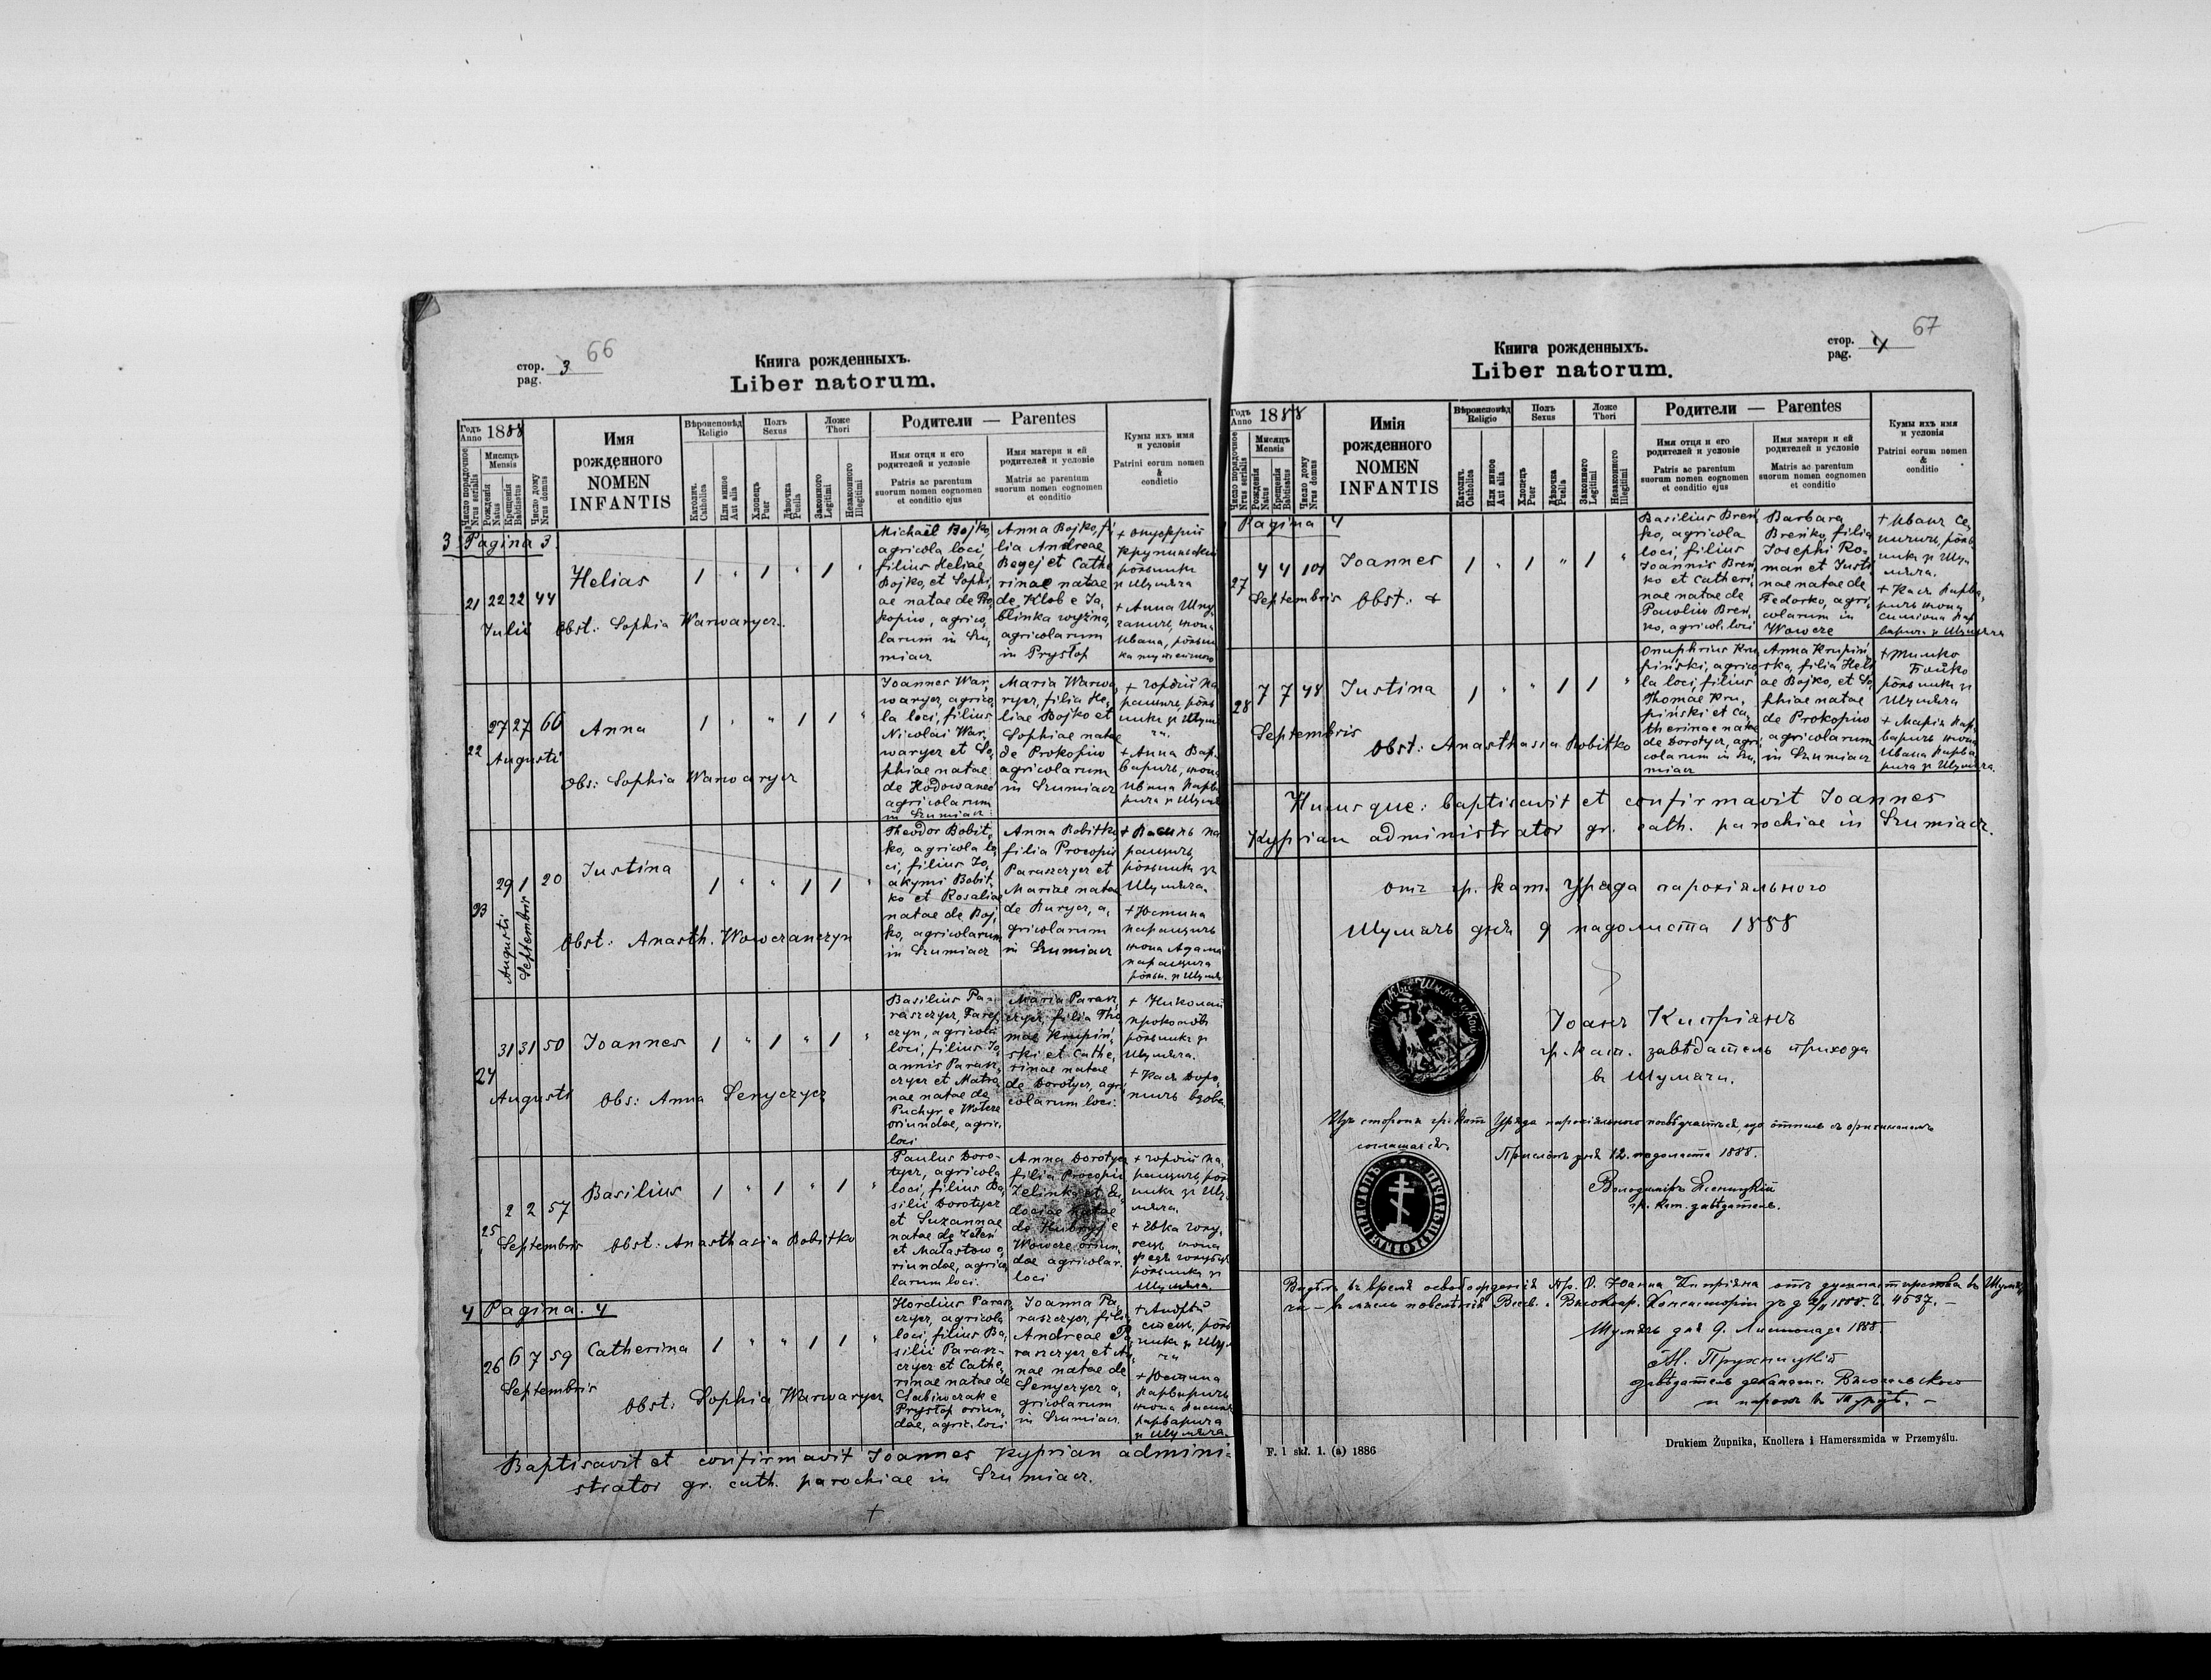 стор. 3 66
pag.
Книга рожденныхъ.
Liber natorum.
Годъ Anno 1888
Число порядочное Nrus serialis
Мисяць Mensis
Рожденія Natus
Крещенія Babtisatus
Число дому Nrus domus
Имя рожденного
NOMEN INFANTIS
Вѣроисповѣд Religio
Католич. Catholica
Или инное Aut alia
Полъ Sexus
Хлопець Puer
Дѣвочка Puella
Ложе Thori
Законного Legitimi
Незаконного Illegitimi
Родители — Parentes
Имя отця и его родителей и условіе
Patris ac parentum suorum nomen cognomen et conditio ejus
Имя матери и ей родителей и условіе
Matris ac parentum suorum nomen cognomen et conditio
Кумы ихъ имя и условія
Patrini eorum nomen & condictio
3 Pagina 3.
21 22 22 44
Julii
Helias
1 " 1 " 1 "
Obst: Sophia Warwarycz.
Michaël Bojko,
agricola loci,
filius Heliae
Bojko, et Sophi,
ae natae de Pro,
kopiw, agrico,
larum in Szu,
miacz
Anna Bojko, fi
lia Andreae
Begej et Cathe
rinae natae
de Klob e Ja,
blinka wyżna,
agricolarum
in Prystop
+ Онуфрій
Крупиньскі
рôльникъ
зъ Шумяча
+ Анна
жона
Ивана, рôльни
ка
22 27 27 66
Augusti
Anna
1 " " 1 1 "
Obs: Sophia Warwarycz
Joannes War,
warycz, agrico,
la loci, filius
Nicolai War,
warycz et So,
phiae natae
de Hodowaneć
agricolarum
in Szumiacz
Maria Warwa,
rycz, filia He,
liae Bojko et
Sophiae natae
de Prokopiw
agricolarum
in Szumiacz
+ Гордій Па
ращичъ, рôль
никъ зъ Шумя
ча.
+ Анна Вар,
варичъ, жона
Ивана Варва
рича зъ Шумяч
23 29 1 20
Augusti
Septembris
Justina
1 " " 1 1 "
Obst: Anasth. Wowczanczyn
Theodor Bobit,
ko, agricola lo,
ci, filius Jo,
akymi Bobit,
ko et Rosaliae
natae de Boj,
ko, agricolarum
in Szumiacz
Anna Bobitko
filia Procopii
Paraszczycz et
Mariae natae
de Burycz, a,
gricolarum
in Szumiacz
+ Василь Па
ращичъ,
рôльникъ зъ
Шумяча.
+ Юстина
Паращичъ
жона Адама
Паращича
рôльн. зъ Шумяч
24 31 31 50
Augusti
Joannes
1 " 1 " 1 "
Obs: Anna Senyczycz
Basilius Pa-
raszczycz,
agricola
loci, filius Jo,
annis Parasz,
czycz et Matro
nae natae de
Puchyr, e Wołcze
oriundae, agric.
loci
Maria Parasz,
czycz, filia Tho
mae Krupiń,
ski et Cathe,
rinae natae
de Dorotycz, agri
colarum loci.
+ Николай
Прокопôвъ
рôльникъ зъ
Шумяча.
+ Кася Доро,
тичъ вдова.
25 2 2 57
Septembris
Basilius
1 " 1 " 1 "
Obst: Anasthasia Bobitko
Paulus Doro-
tycz, agricola
loci, filius Ba,
silii Dorotycz
et Suzannae
natae de Zeleń
et Małastow o,
riundae, agrico,
larum loci.
Anna Dorotycz
filia Procopii
Zelinka et Eu,
dociae natae
de e
Wowcze oriun,
dae agricolar.
loci
+ Гордій Па,
ращичъ, рôл
никъ зъ Шу,
мяча.
+ Ивка
жона
рôльника зъ
Шумяча.
4 Pagina. 4
26 6 7 59
Septembris
Catherina
1 " " 1 1 "
Obst: Sophia Warwarycz
Hordius Parasz,
czycz, agricola
loci, filius Ba,
silii Parasz-
czycz et Cathe,
rinae natae de
Sabiwczak e
Prystop oriun,
dae, agric. loci
Joanna Pa,
raszczycz, filia
Andreae Pa
raszczycz et An
nae natae de
Senyczycz a,
gricolarum
in Szumiacz.
+ Андрей
рôль
никъ зъ Шумя
ча
+ Юстина
Варваричъ
жона
Варварича
зъ Шумяча
Baptisavit et confirmavit Joannes Kyprian admini-
strator gr. cath. parochiae in Szumiacz.
+
67
стор. 4
pag.
Книга рожденныхъ.
Liber natorum.
Годъ Anno 1888
Число порядочное Nrus serialis
Мисяць Mensis
Рожденія Natus
Крещенія Babtisatus
Число дому Nrus domus
Имія рожденного
NOMEN INFANTIS
Вѣроисповѣд Religio
Католич. Catholica
Или инное Aut alia
Полъ Sexus
Хлопець Puer
Дѣвочка Puella
Ложе Thori
Законного Legitimi
Незаконного Illegitimi
Родители — Parentes
Имя отця и его родителей и условіе
Patris ac parentum suorum nomen cognomen et conditio ejus
Имя матери и ей родителей и условіе
Matris ac parentum suorum nomen cognomen et conditio
Кумы ихъ имя и условія
Patrini eorum nomen & conditio
Pagina 4
27 4 4 101
Septembris
Joannes
1 " 1 " 1 "
Obst: +
Basilius Breń
ko, agricola
loci, filius
Joannis Breń
ko et Catheri,
nae natae de
Pawliw Breń,
ko, agricol. loci
Barbara
Breńko, filia
Josephi Ro-
man et Justi
nae natae de
Fedorko, agri,
colarum in
Wowcze
+ Иванъ Се,
ничичъ, рôль
никъ зъ Шу,
мяча.
+ Кася Варва,
ричъ жона
Симіона Вар
варича зъ Шумяча
28 7 7 48
Septembris
Justina
1 " " 1 1 "
Obst: Anasthasia Bobitko
Onuphrius Kru
piński, agrico,
la loci, filius
Thomae Kru,
piński et Ca,
therinae natae
de Dorotycz, agri,
colarum in Szu,
miacz
Anna Krupiń
ska, filia Heli
ae Bojko, et So,
phiae natae
de Prokopiw
agricolarum
in Szumiacz
+ Тимко
Бойко
рôльникъ зъ
Шумяча
+ Марія Вар,
варичъ жона
Ивана Варва,
рича зъ Шумяча.
Hucusque: baptisavit et confirmavit Joannes
Kyprian administrator gr. cath. parochiae in Szumiacz.
отъ гр. кат. Уряда парохіяльного
Шумячъ дня 9 падолиста 1888
Іоанъ Кипріянъ
гр. кат. завѣдатель прихода
въ Шумячи.
Изъ стороны гр. кат Уряда парохіяльного посвѣдчаеться, що отписъ съ оригиналомъ
соглашаеся.
Присліпъ дня 12. падолиста 1888.
гр. кат. завѣдатель.
Шумячъ дня 9. Листопада 1888.
М. Пружницкій
завѣдатель деканата Высочаньского
и парохъ въ Турцѣ. —
F. 1 skł. 1. (a) 1886
Drukiem Żupnika, Knollera i Hamerszmida w Przemyślu.